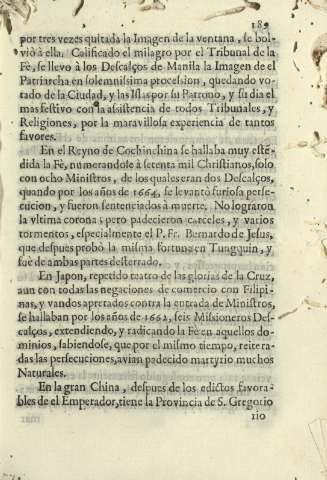 185
por tres vezes quitada la Imagen de la ventana, se bol-
viò à ella. Calificado el milagro por el Tribunal de la
Fè, se llevò à los Descalços de Manila la Imagen de el
Patriarcha en solemnissima procession, quedando vo-
tado de la Ciudad, y las Islas por su Patrono, y su dia el
mas festivo con la assistencia de todos Tribunales, y
Religiones, por la maravillosa experiencia de tantos
favores.
En el Reyno de Cochinchina se hallaba muy esté-
dida la Fè, numerandole à setenta mil Christianos, solo
con ocho Ministros, de los quales eran dos Descalços,
quando por los años de 1664, se levantò furiosa perse-
cucion, y fueron sentenciados à muerte. No lograron
la vltima corona; pero padecieron carceles, y varios
tormentos, especialmente el P. Fr. Bernardo de Jesus,
que despues probò la misma fortuna en Tungquin, y
fuè de ambas partes desterrado.
En Japon, repetido teatro de las glorias de la Cruz,
aun con todas las negaciones de comercio con Filipi-
nas, y vandos apretados contra la entrada de Ministros,
se hallaban por los años de 1662, seis Missioneros Des-
calços, extendiendo, y radicando la Fè en aquellos do-
minios, sabiendose, que por el mismo tiempo, reitera-
das las persecuciones, avian padecido martyrio muchos
Naturales.
En la gran China, despues de los edictos favora-
bles de el Emperador, tiene la Provincia de S. Gregorio
rio